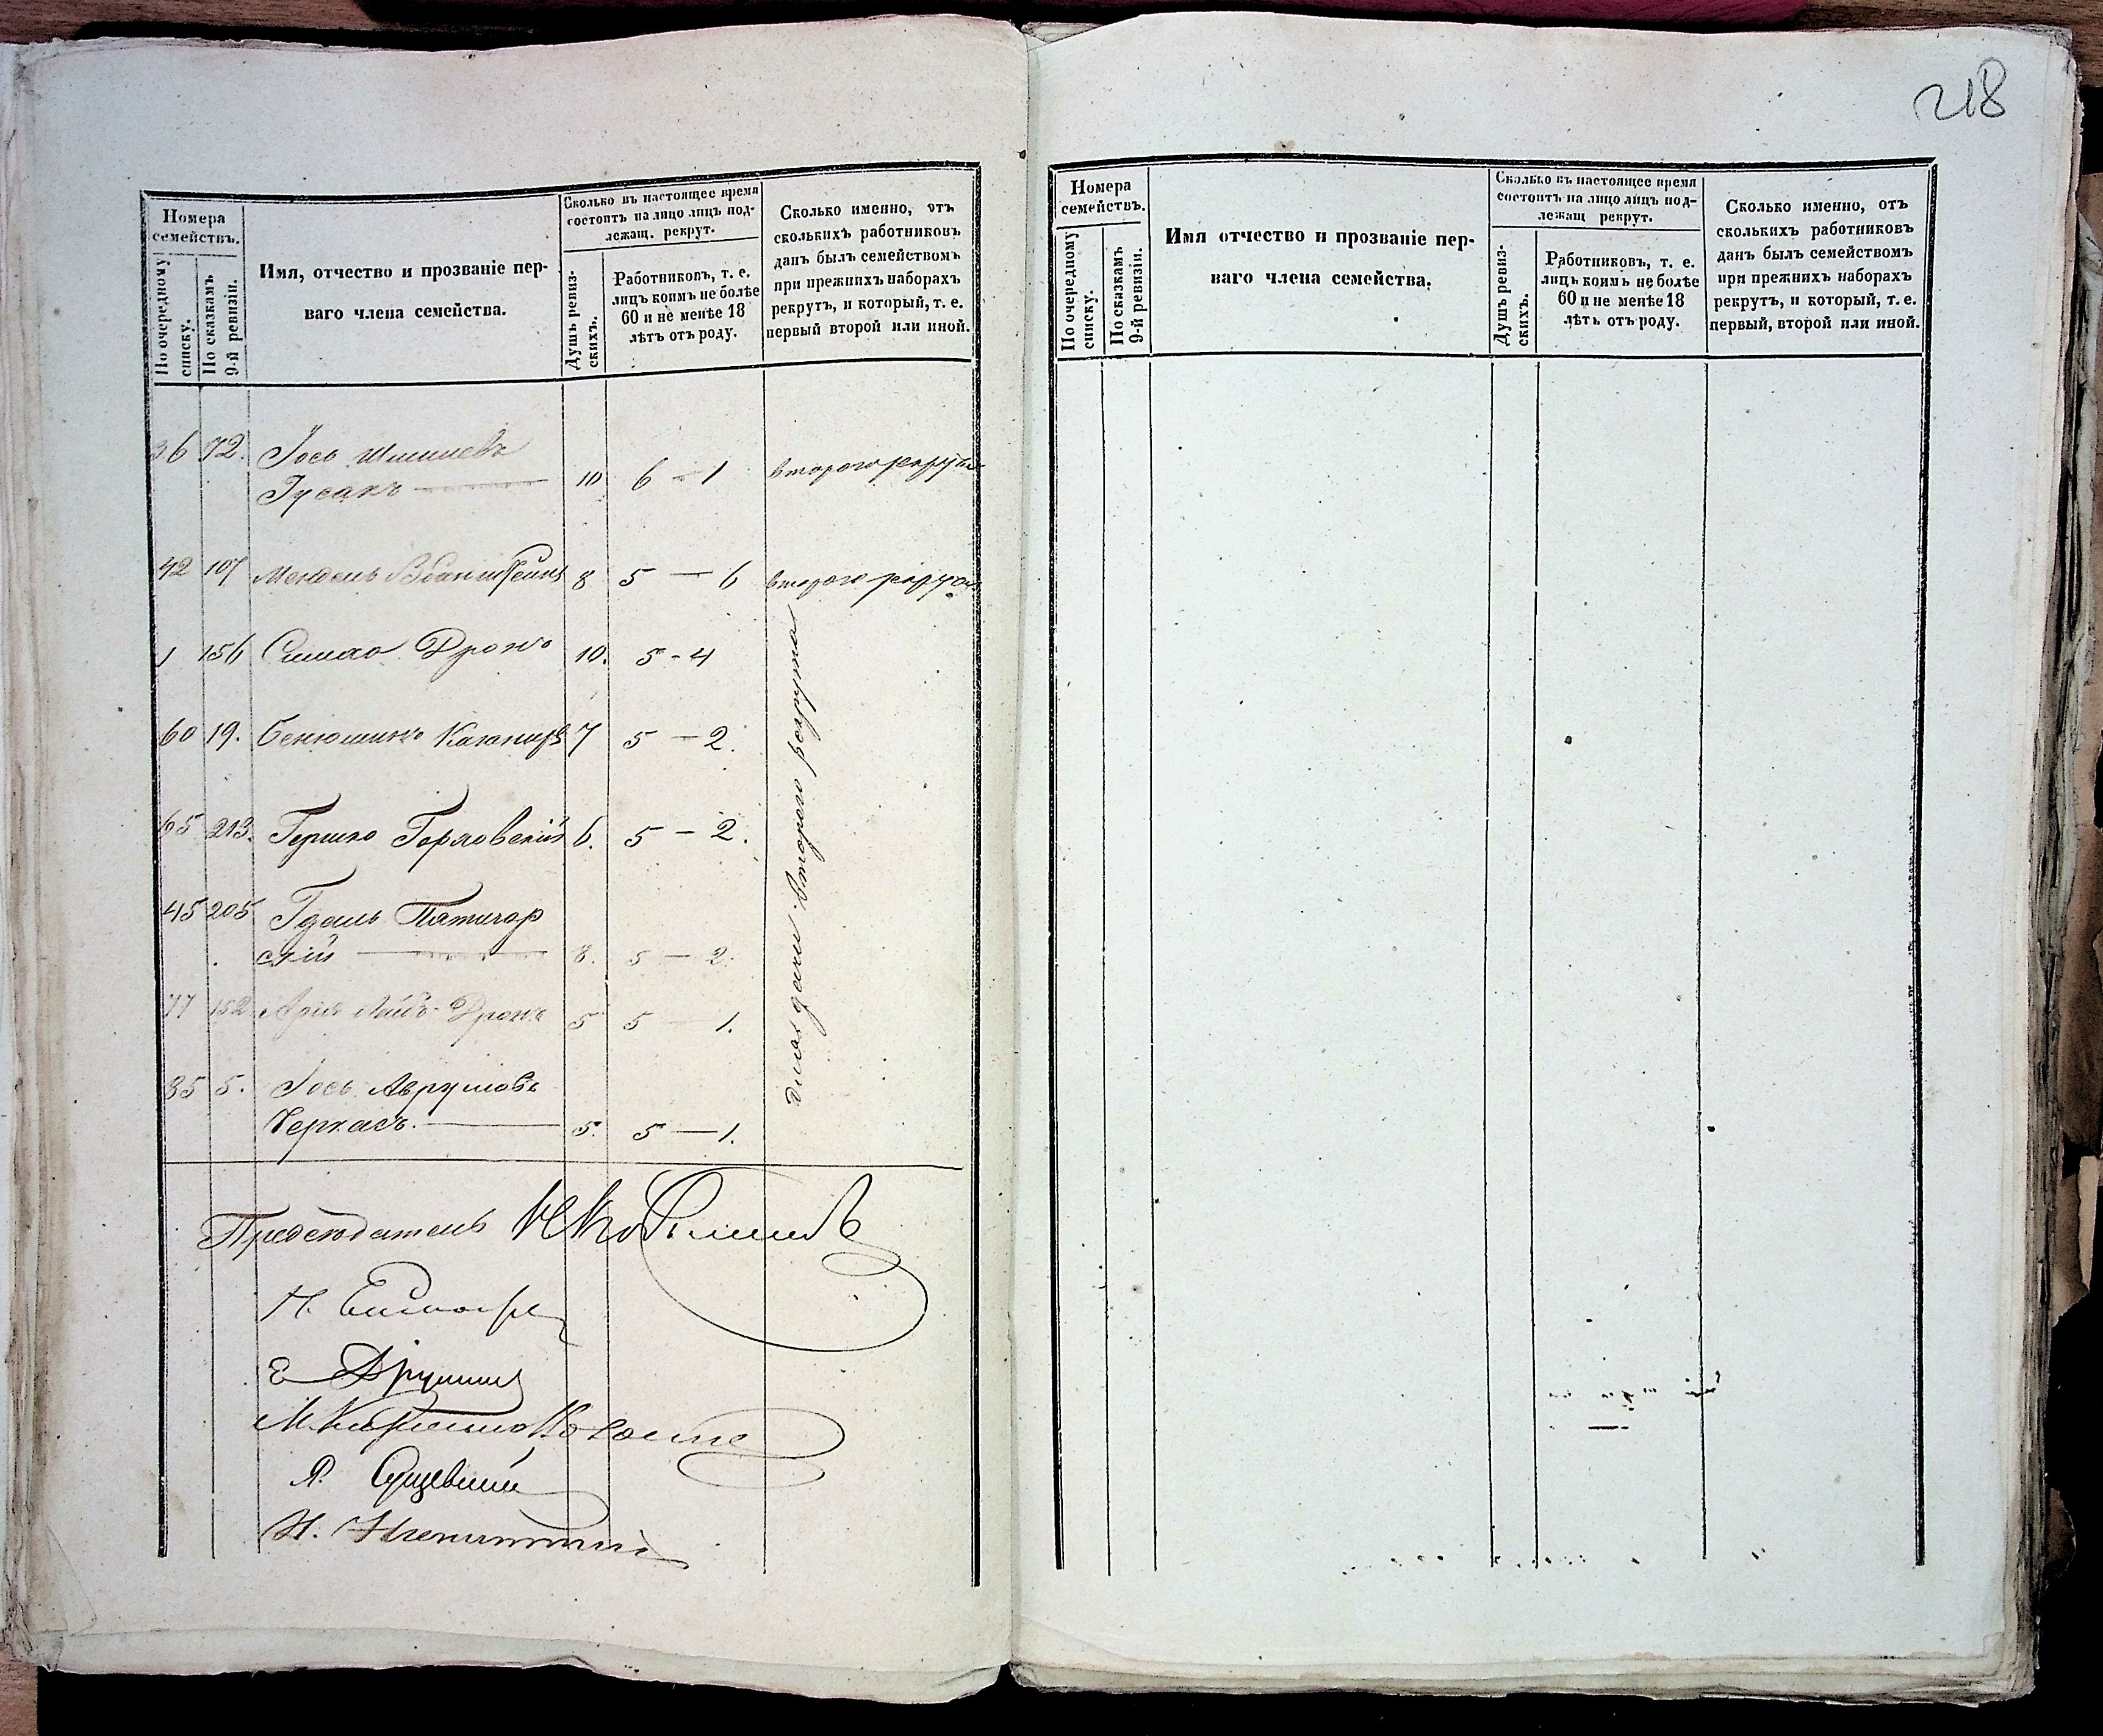 218
Номера
семействъ.
По очередному
списку.
По сказкамъ
9-й ревизіи.
Имя, отчество и прозваніе пер-
ваго члена семейства.
Сколько въ настоящее время
состоитъ на лицо лицъ под-
лежащ. рекрут.
Душъ ревиз-
скихъ.
Работниковъ, т. е.
лицъ коимъ не болѣе
60 и не менѣе 18
лѣтъ отъ роду.
Сколько именно, отъ
сколькихъ работниковъ
данъ былъ семействомъ
при прежнихъ наборахъ
рекрутъ, и который, т. е.
первый второй или иной.
36 72. Іось
Гусакъ 10 6 — 1 втораго рекрута
42 107 Мендель 8 5 — 6 втораго рекрута
1 156 Симха Дронъ 10. 5 - 4
60 19. Бенюминъ 7 5 — 2.
65 213. Гершко Горловскій 6. 5 — 2.
45 205 Гдаль Пятигор
скій 8. 5 — 2.
77 152 Арія Лейбъ Дронъ 5 5 — 1.
35 5. Іось Аврумовъ
Черкасъ. 5. 5 — 1.
втораго рекрута
Предсѣдатель
Номера
семействъ.
По очередному
списку.
По сказкамъ
9-й ревизіи.
Имя отчество и прозваніе пер-
ваго члена семейства.
Сколько въ настоящее время
состоитъ на лицо лицъ под-
лежащ рекрут.
Душъ ревиз-
скихъ.
Работниковъ, т. е.
лицъ коимъ не болѣе
60 и не менѣе 18
лѣтъ отъ роду.
Сколько именно, отъ
сколькихъ работниковъ
данъ былъ семействомъ
при прежнихъ наборахъ
рекрутъ, и который, т. е.
первый, второй или иной.